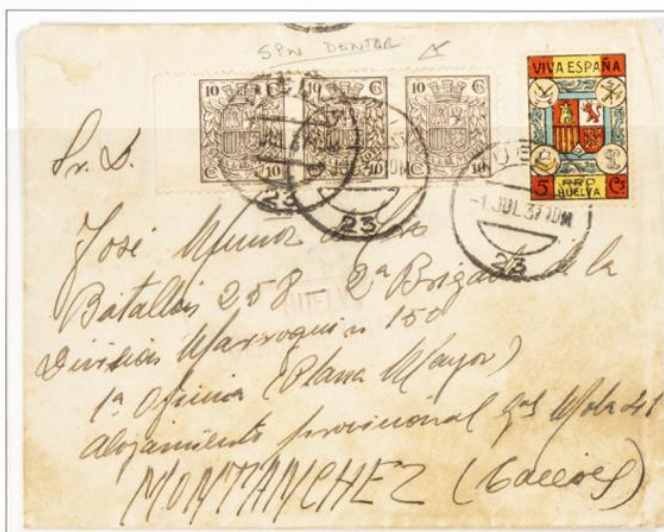 SIN DENTAR
10 Cs 10 Cs 10 Cs
10 10 10
VIVA ESPAÑA
PRO
5 HUELVA Cs
-1.JUL.37.10M
23 23 23
Sr. D.
José Muñoz de
Batallón 258 - 2ª Brigada de la
HUELVA
División Marroquí nº 150
1ª Oficina (Plana Mayor)
Alojamiento provisional Gral Mola 41
MONTANCHEZ (Cáceres)